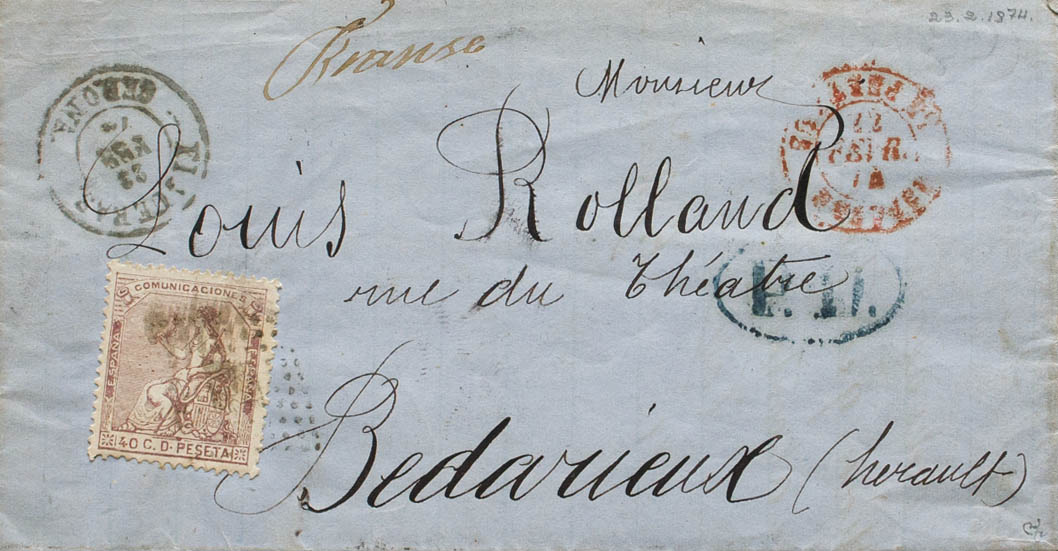 23.2.1874.
Franse
Monsieur
Louis Rolland
rue du Théatre
Bedarieux (herault)
GERONA
23
FEB
74
COMUNICACIONES
ESPAÑA
ESPAÑA
40 C. D. PESETA
P.D.